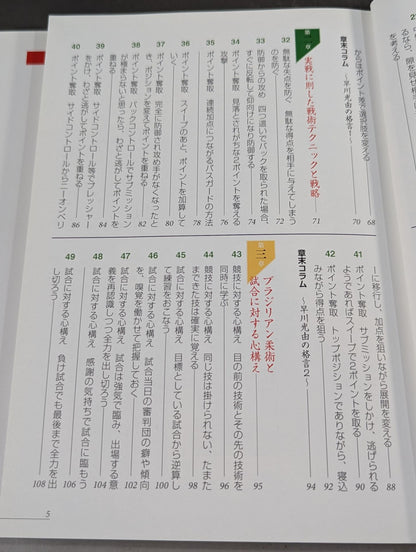 からはポイント差で選択肢を変える 68
章末コラム ～早川光由の格言1～ 70
第二章 実戦に則した戦術テクニックと戦略 71
32 無駄な失点を防ぐ 無駄な得点を相手に与えてしまう
のを防ぐ 72
33 防御からの攻め 四つ這いでバックを取られた場合、
すぐに反転して仰向けになり防御する 74
34 ポイント奪取 見落とされがちな2ポイントを奪える
攻撃 72
35 ポイント奪取 連続加点につながるパスガードの方法 76
36 ポイント奪取 スイープのあと、ポイントを加算して
いく 78
37 ポイント奪取 完全に防御され攻め手がなくなったと
き、ポジションを変えてポイントを重ねる 80
38 ポイント奪取 バックコントロールでサブミッション
が極まらないと思ったら、わざと逃がしてポイントを
重ねる 82
39 ポイント奪取 サイドコントロール等でプレッシャー
をかけ、わざと逃がしてポイントを重ねる 84
40 ポイント奪取 サイドコントロールからニーオンベリ 86
ーに移行し、加点を狙いながら展開を変える 88
41 ポイント奪取 サブミッションをしかけ、逃げられる
ようであればスイープで2ポイントを取る 90
42 ポイント奪取 トップポジションでありながら、寝込
みながら得点を狙う 92
章末コラム ～早川光由の格言2～ 94
第三章 ブラジリアン柔術と
試合に対する心構え 95
43 競技に対する心構え 目の前の技術とその先の技術を
同時に学ぶ 96
44 競技に対する心構え 同じ技は掛けられない、たまた
まできた技は確実に覚える 98
45 試合に対する心構え 目標としている試合から逆算し
て練習をおこなう 100
46 試合に対する心構え 試合当日の審判団の癖や傾向
を、嗅覚を働かせて把握しておく 102
47 試合に対する心構え 試合は強気で臨み、出場する意
義を再認識しつつ全力を出し切ろう 104
48 試合に対する心構え 感謝の気持ちで試合に臨もう 106
49 試合に対する心構え 負け試合でも最後まで全力を出
し切ろう! 108
5